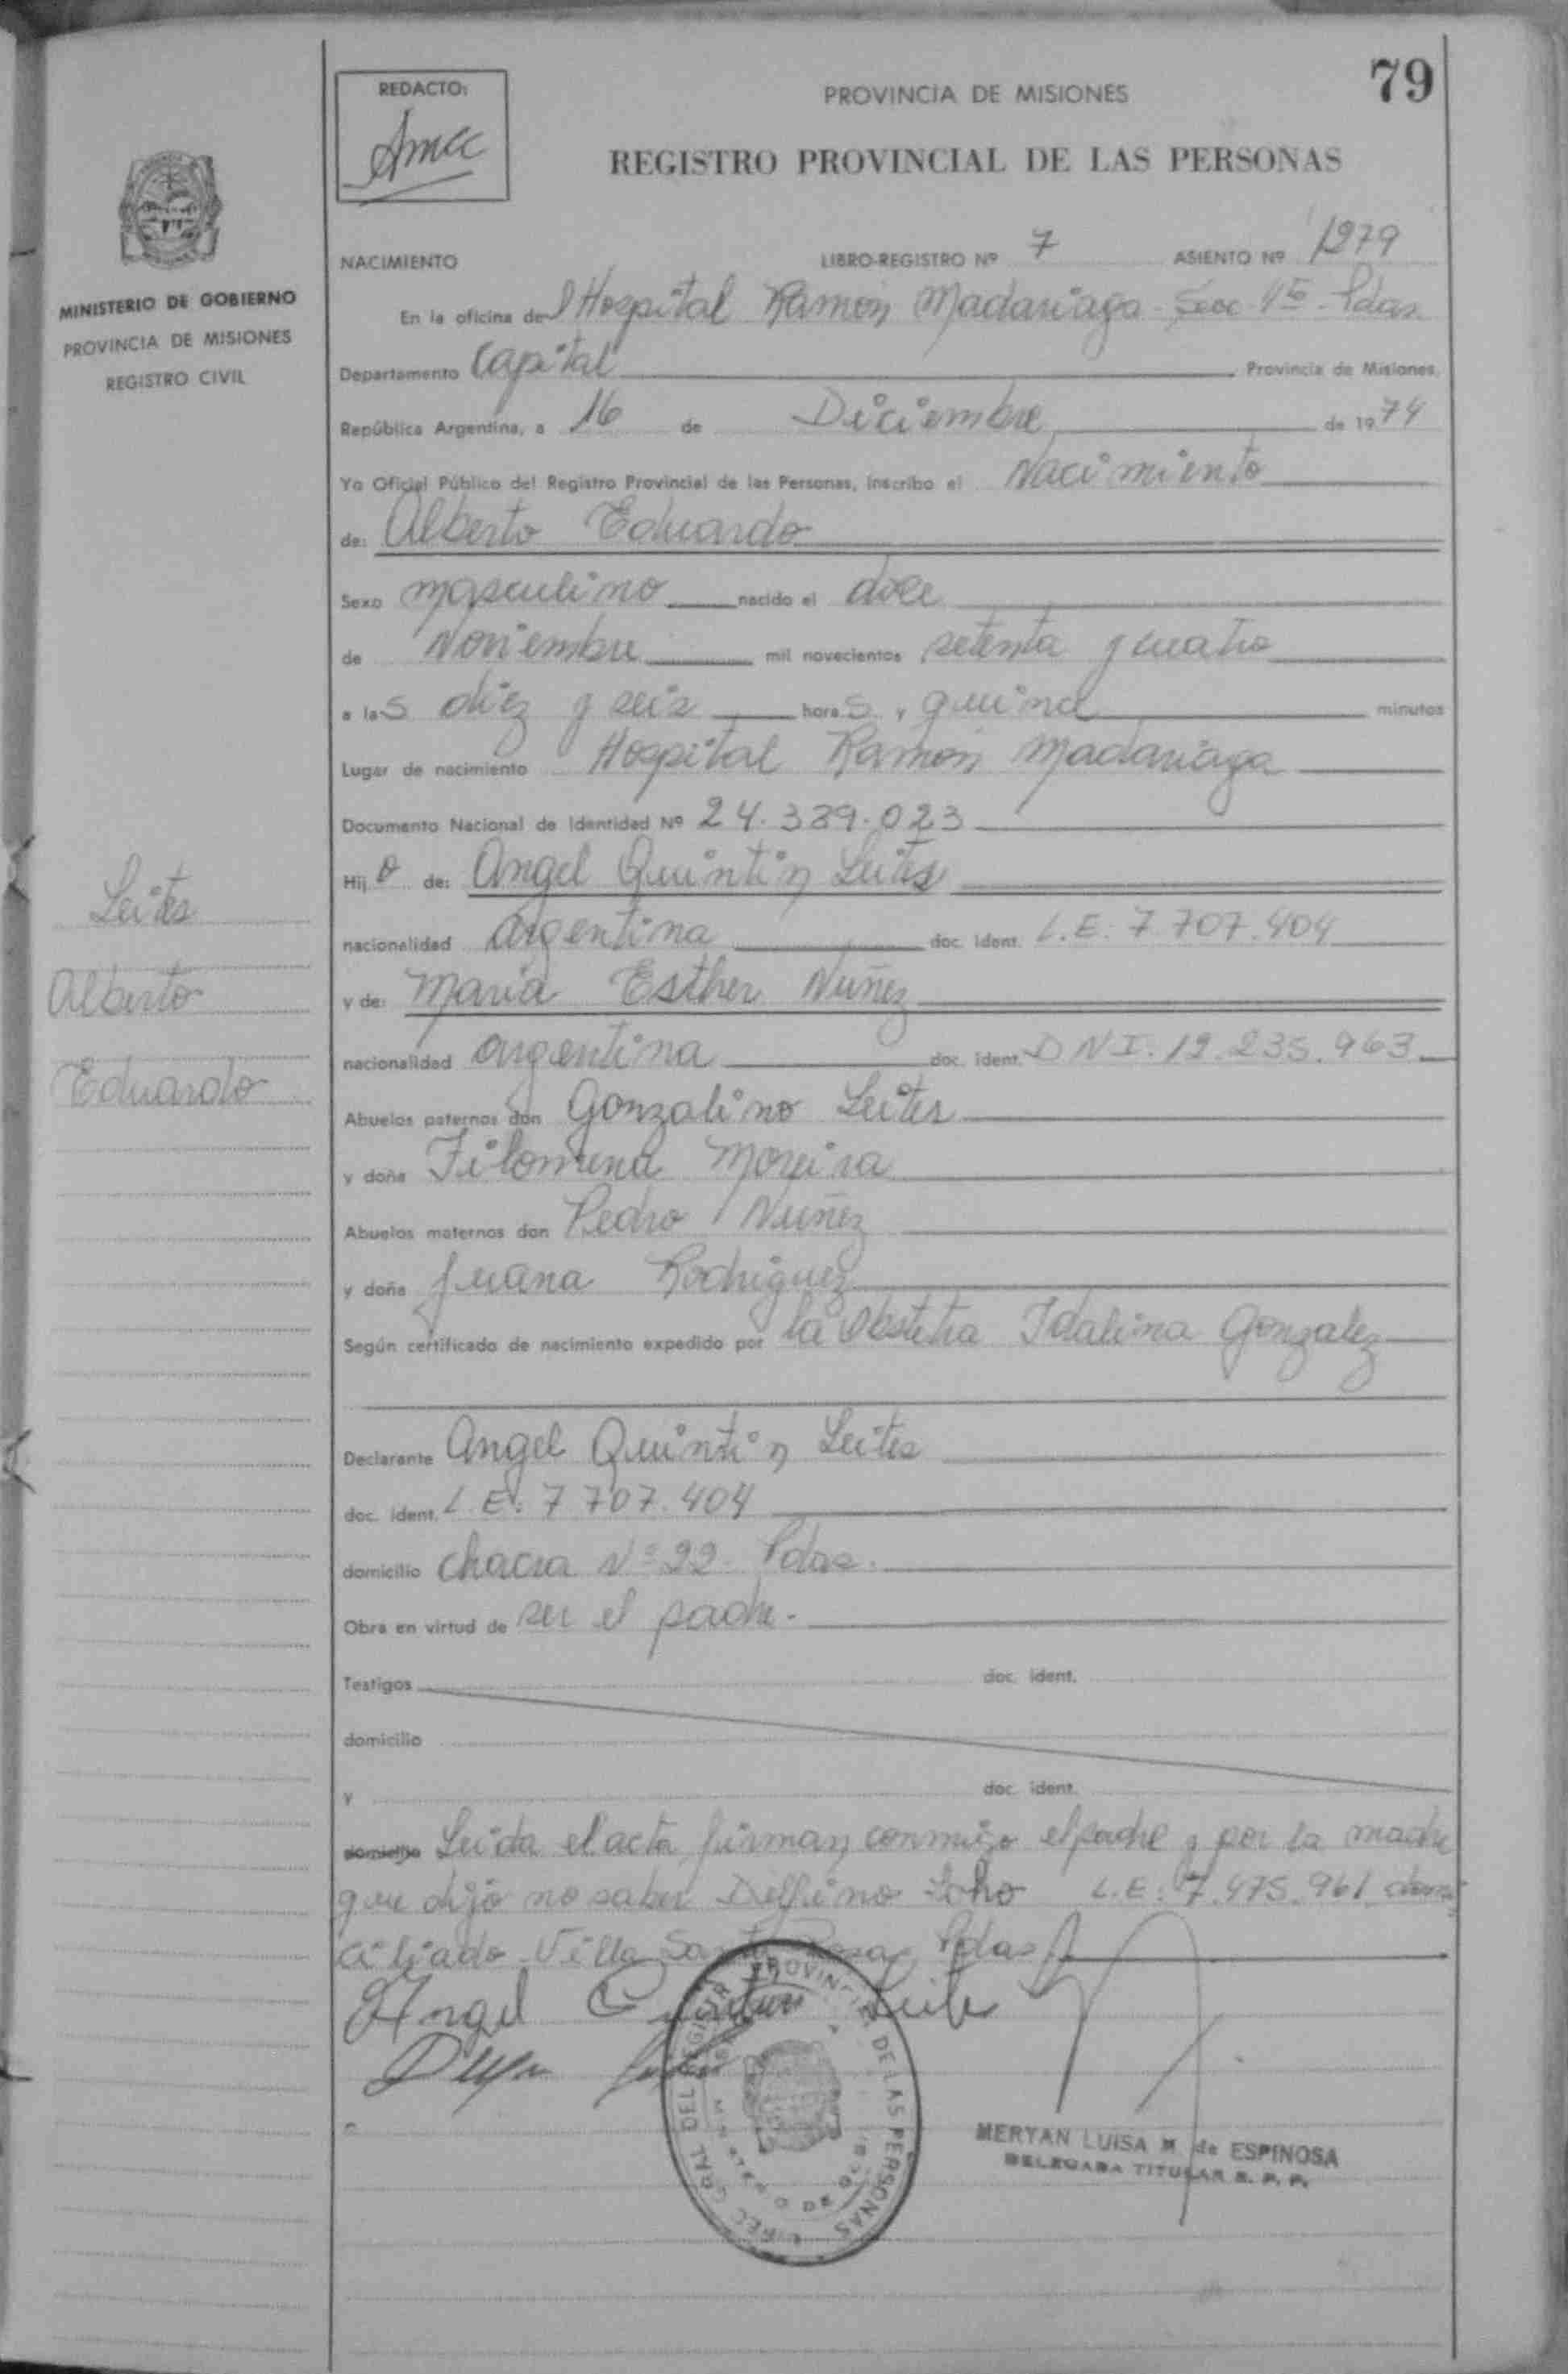 79
REDACTO:
PROVINCIA DE MISIONES
REGISTRO PROVINCIAL DE LAS PERSONAS
MINISTERIO DE GOBIERNO
PROVINCIA DE MISIONES
REGISTRO CIVIL
NACIMIENTO LIBRO-REGISTRO Nº 7 ASIENTO Nº 1279
En la oficina del Hospital Ramón Madariaga - Secc 4ta - Pdas.
Departamento Capital Provincia de Misiones,
República Argentina, a 16 de Diciembre de 1974
Yo Oficial Público del Registro Provincial de las Personas, inscribo el Nacimiento
de: Alberto Eduardo
Sexo masculino nacido el doce
de Noviembre mil novecientos setenta y cuatro
a las diez y seis horas, quince minutos
Lugar de nacimiento Hospital Ramón Madariaga
Documento Nacional de Identidad Nº 24.339.023
Hijo de: Angel Quintin Leites
nacionalidad argentina doc. ident. L.E. 7.707.404
y de: Maria Esther Nuñez
nacionalidad argentina doc. ident. DNI. 12.235.963
Leites
Alberto
Eduardo
Abuelos paternos don Gonzalino Leites
y doña Filomena Moreira
Abuelos maternos don Pedro Nuñez
y doña Juana Rodriguez
Según certificado de nacimiento expedido por la Obstetra Idalina Gonzalez
Declarante Angel Quintin Leites
doc. ident. L.E. 7.707.404
domicilio chacra Nº 22 Pdas.
Obra en virtud de ser el padre.
Testigos doc. ident.
domicilio
y doc. ident.
domicilio Leida el acta firman conmigo el padre y por la madre
que dijo no saber Delfino L.E: 7.475.961 domi
ciliado Villa Santa Rosa Pdas
Angel Quintin Leites
REGISTRO PROVINCIAL DE LAS PERSONAS
MERYAN LUISA M. de ESPINOSA
DELEGADA TITULAR R. P. P.